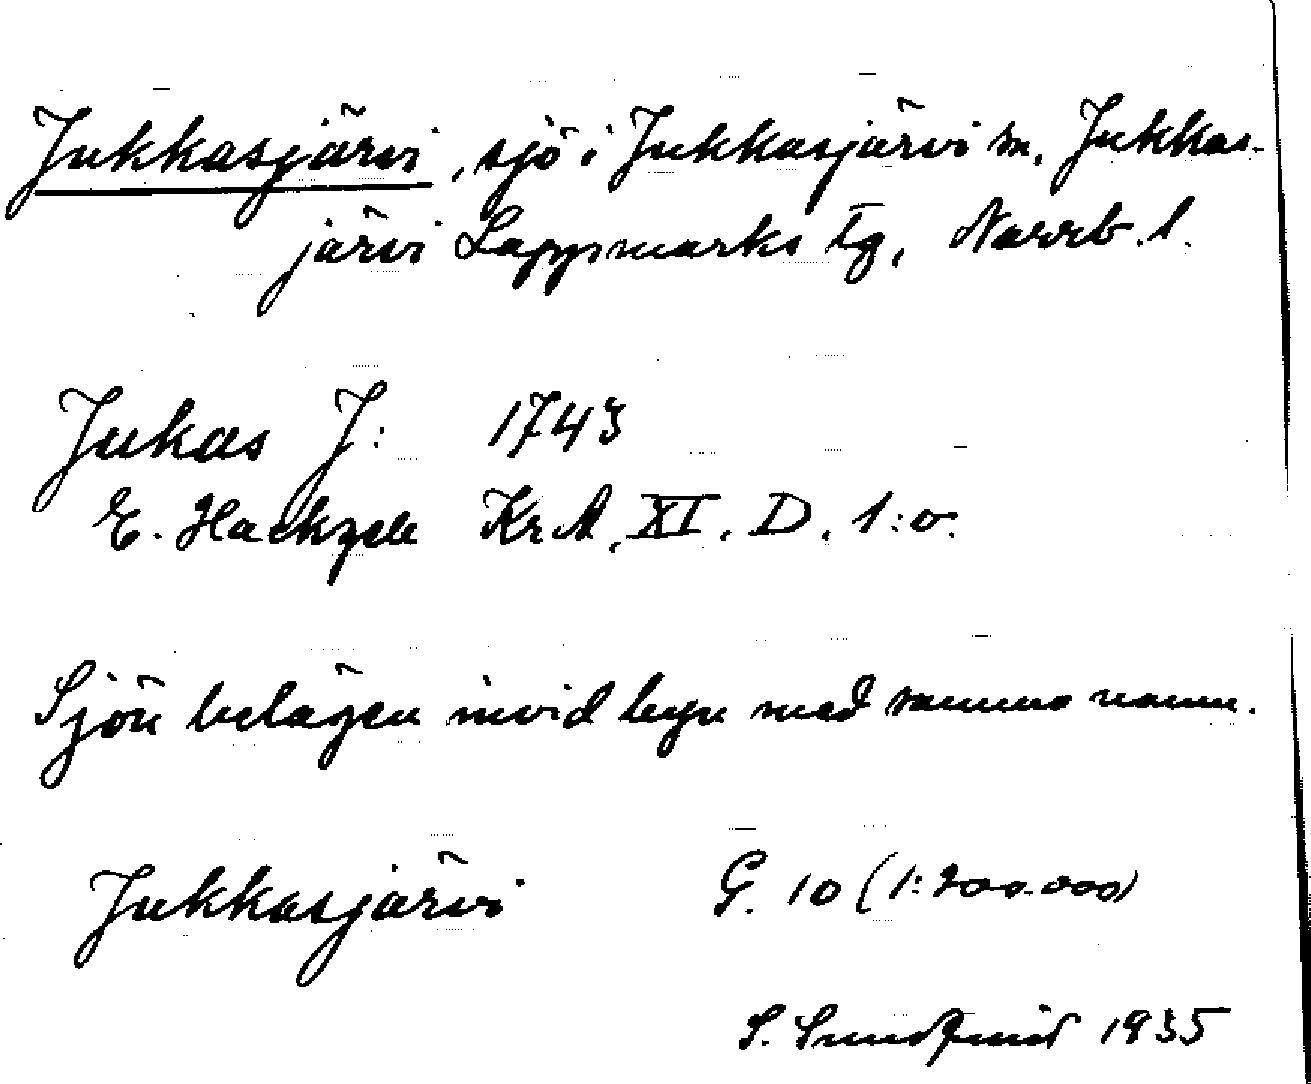 Jukkasjärvi, sjö i Jukkasjärvi sn, Jukkas-
järvi Lappmarks tg, Norrb. l.
Jukas J: 1743
E. Hackzell Kr A. XI. D. 1:o.
Sjön belägen invid byn med samma namn.
Jukkasjärvi G. 10 (1:200.000)
S. Sundqvist 1935